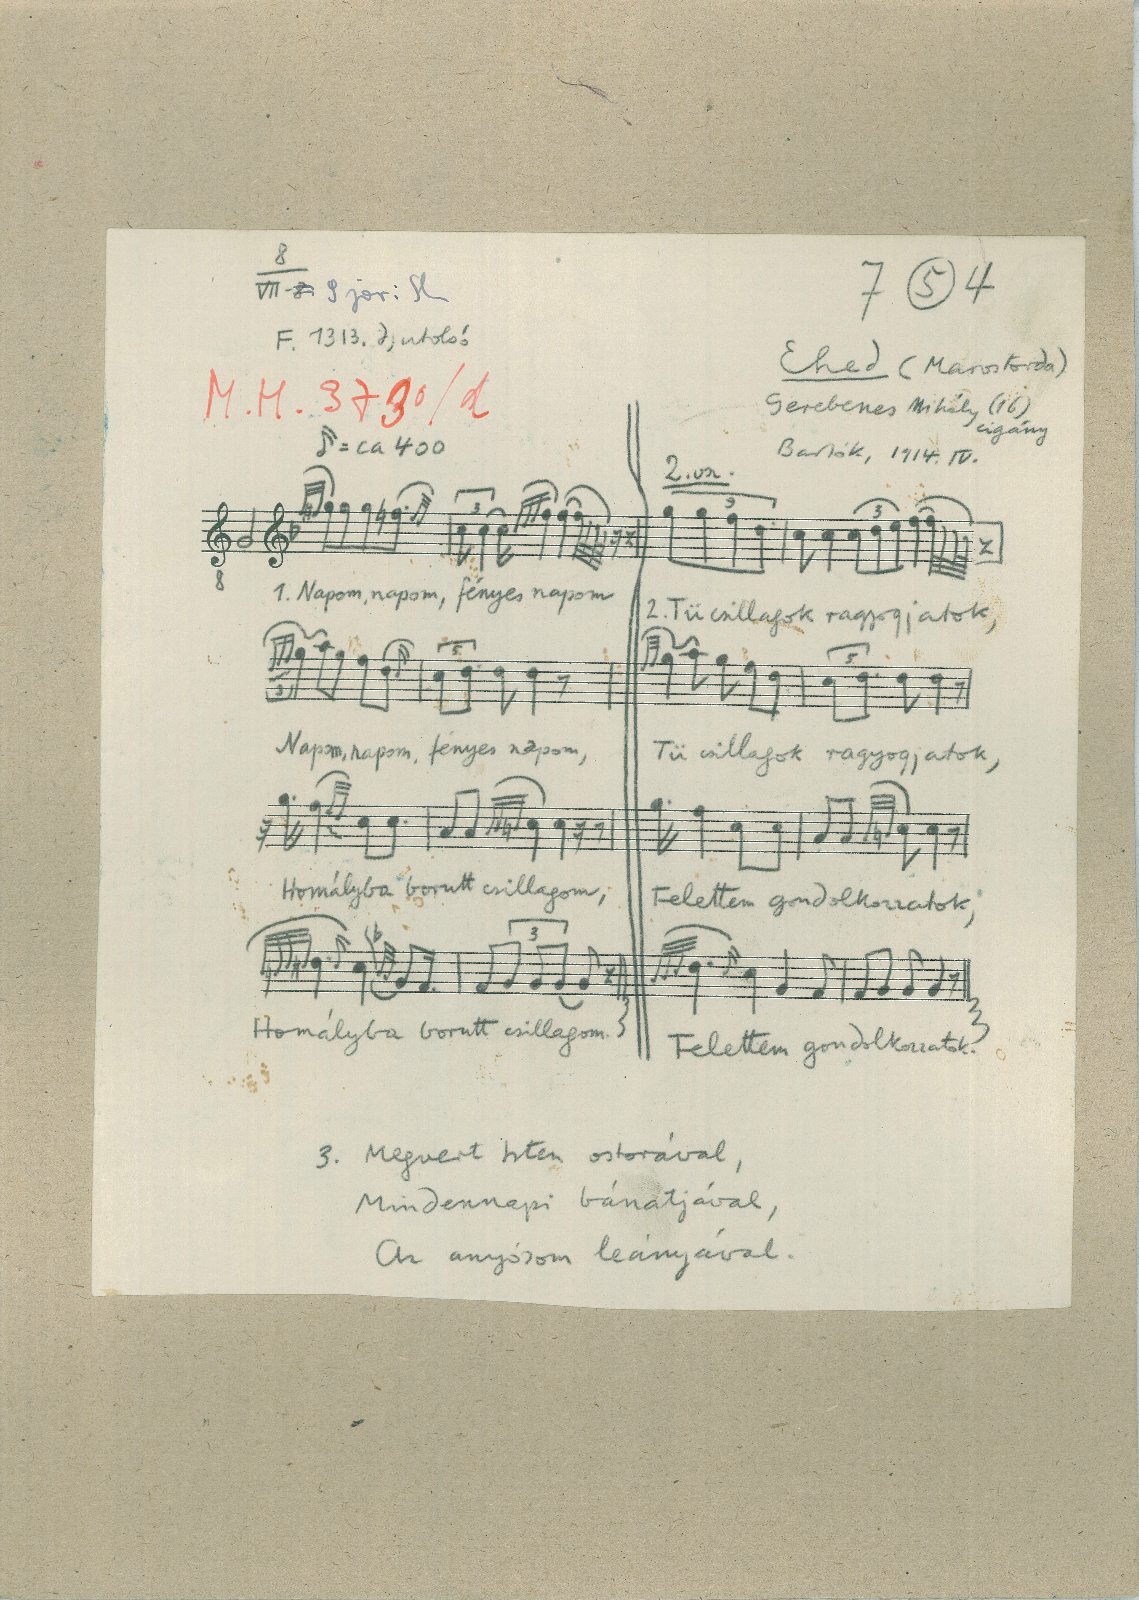 8
VII
F. 1313. d, utolsó
M.H. 3730/d
= ca 400
7 (5) 4
Ehed (Marostorda)
Gerebenes Mihály (16)
cigány
Bartók, 1914. IV.
2. vsz.
1. Napom, napom, fényes napom
2. Tü csillagok ragyogjatok,
Napom, napom, fényes napom,
Tü csillagok ragyogjatok,
Homályba borutt csillagom,
Felettem gondolkozzatok,
Homályba borutt csillagom.
Felettem gondolkozzatok.
3. Megvert Isten ostorával,
Mindennapi bánatjával,
Az anyósom leányával.